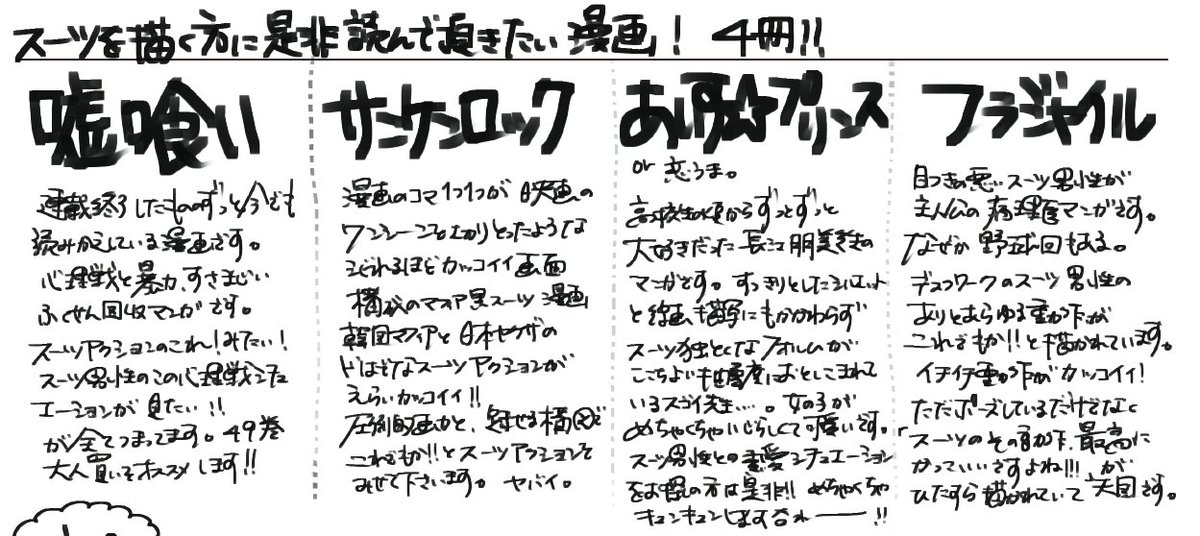 スーツを描く方に是非読んで頂きたい漫画! 4冊!!
嘘喰い
連載終了したもののずっと今でも
読みかえしている漫画です。
心理戦と暴力、すさまじい
ふくせん回収マンガです。
スーツアクションのこれ!みたい!
スーツ男性のこの心理戦シチュ
エーションが見たい!!
が全てつまってます。49巻
大人買いをオススメします!!
サンケンロック
漫画のコマ1つ1つが映画の
ワンシーンを切りとったような
しびれるほどカッコイイ画面
構成のマフィア黒スーツ漫画
韓国マフィアと日本ヤクザの
ドはでなスーツアクションが
えらいカッコイイ!!
圧倒的画力と、魅せる構図で
これでもか!!とスーツアクションを
みせて下さいます。ヤバイ。
プリンス
or 恋うま。
高校生の頃からずっとずっと
大好きだった長江朋美先生の
マンガです。すっきりとしたシルエット
と線画も描写にもかかわらず
スーツ独とくなフォルムが
ここちよい密度におとしこまれて
いるスゴイ先生…。女の子が
めちゃくちゃいじらしくて可愛いです。
スーツ男性との恋愛シチュエーション
をお探しの方は是非!! めちゃくちゃ
キュンキュンします
フラジャイル
目つきの悪いスーツ男性が
主人公の病理医マンガです。
なぜか野球回もある。
デスクワークのスーツ男性の
ありとあらゆる重か下が
これでもか!!と描かれています。
イチイチ重か下がカッコイイ!
ただポーズしているだけでなく
「スーツのその重か下、最高に
かっていいですよね!!!」が
ひたすら描かれていて天国です。